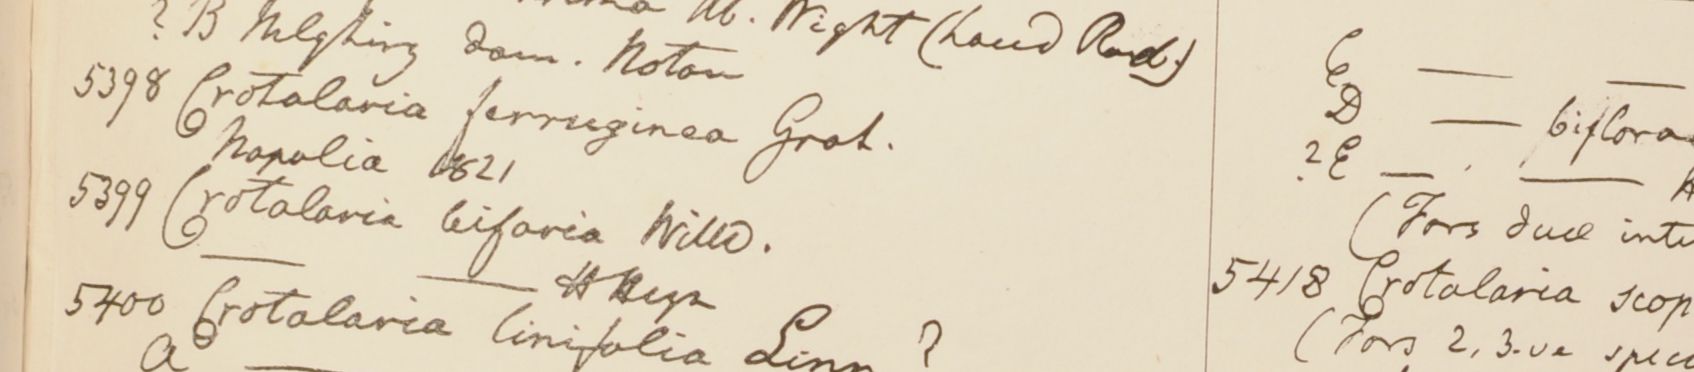 W. Wight (haud Roxb.)
? B Nelghiry dom. Noton
5398 Crotalaria ferruginea Grah.
Napalia 1821
5399 Crotalaria bifaria Willd.
— — H Heyn
5400 Crotalaria linifolia Linn ?
a —
C — —
D — biflora
? E — —
(Fors duae
5418 Crotalaria scop
(Fors 2, 3-ve spec